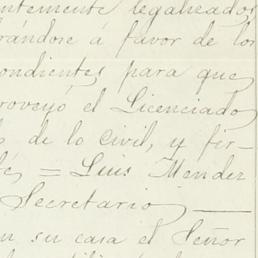 ntemente legalizados
rándose á favor de los
ondientes para que
proveyó el Licenciado
de lo civil, y fir-
é, = Luis Mendez
Secretario
n su casa el Señor